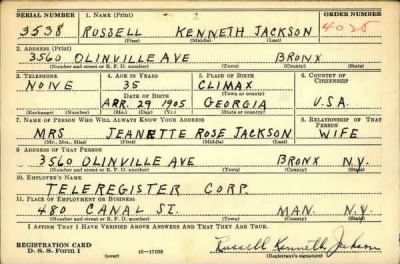 SERIAL NUMBER 1. NAME (Print) ORDER NUMBER
3538 RUSSELL KENNETH JACKSON 4025
(First) (Middle) (Last)
2. ADDRESS (Print)
3560 OLINVILLE AVE BRONX
(Number and street or R. F. D. number) (Town) (County) (State)
3. TELEPHONE 4. AGE IN YEARS 5. PLACE OF BIRTH 6. COUNTRY OF CITIZENSHIP
NONE 35 CLIMAX
DATE OF BIRTH (Town or county)
APR. 29 1905 GEORGIA U.S.A.
(Exchange) (Number) (Mo.) (Day) (Yr.) (State or country)
7. NAME OF PERSON WHO WILL ALWAYS KNOW YOUR ADDRESS 8. RELATIONSHIP OF THAT PERSON
MRS JEANETTE ROSE JACKSON WIFE
(Mr., Mrs., Miss) (First) (Middle) (Last)
9. ADDRESS OF THAT PERSON
3560 OLINVILLE AVE BRONX N.Y.
(Number and street or R. F. D. number) (Town) (County) (State)
10. EMPLOYER'S NAME
TELEREGISTER CORP.
11. PLACE OF EMPLOYMENT OR BUSINESS
480 CANAL ST. MAN. N.Y.
(Number and street or R. F. D. number) (Town) (County) (State)
I AFFIRM THAT I HAVE VERIFIED ABOVE ANSWERS AND THAT THEY ARE TRUE.
REGISTRATION CARD
D. S. S. Form 1 (over) 16—17105 Russell Kenneth Jackson
(Registrant's signature)